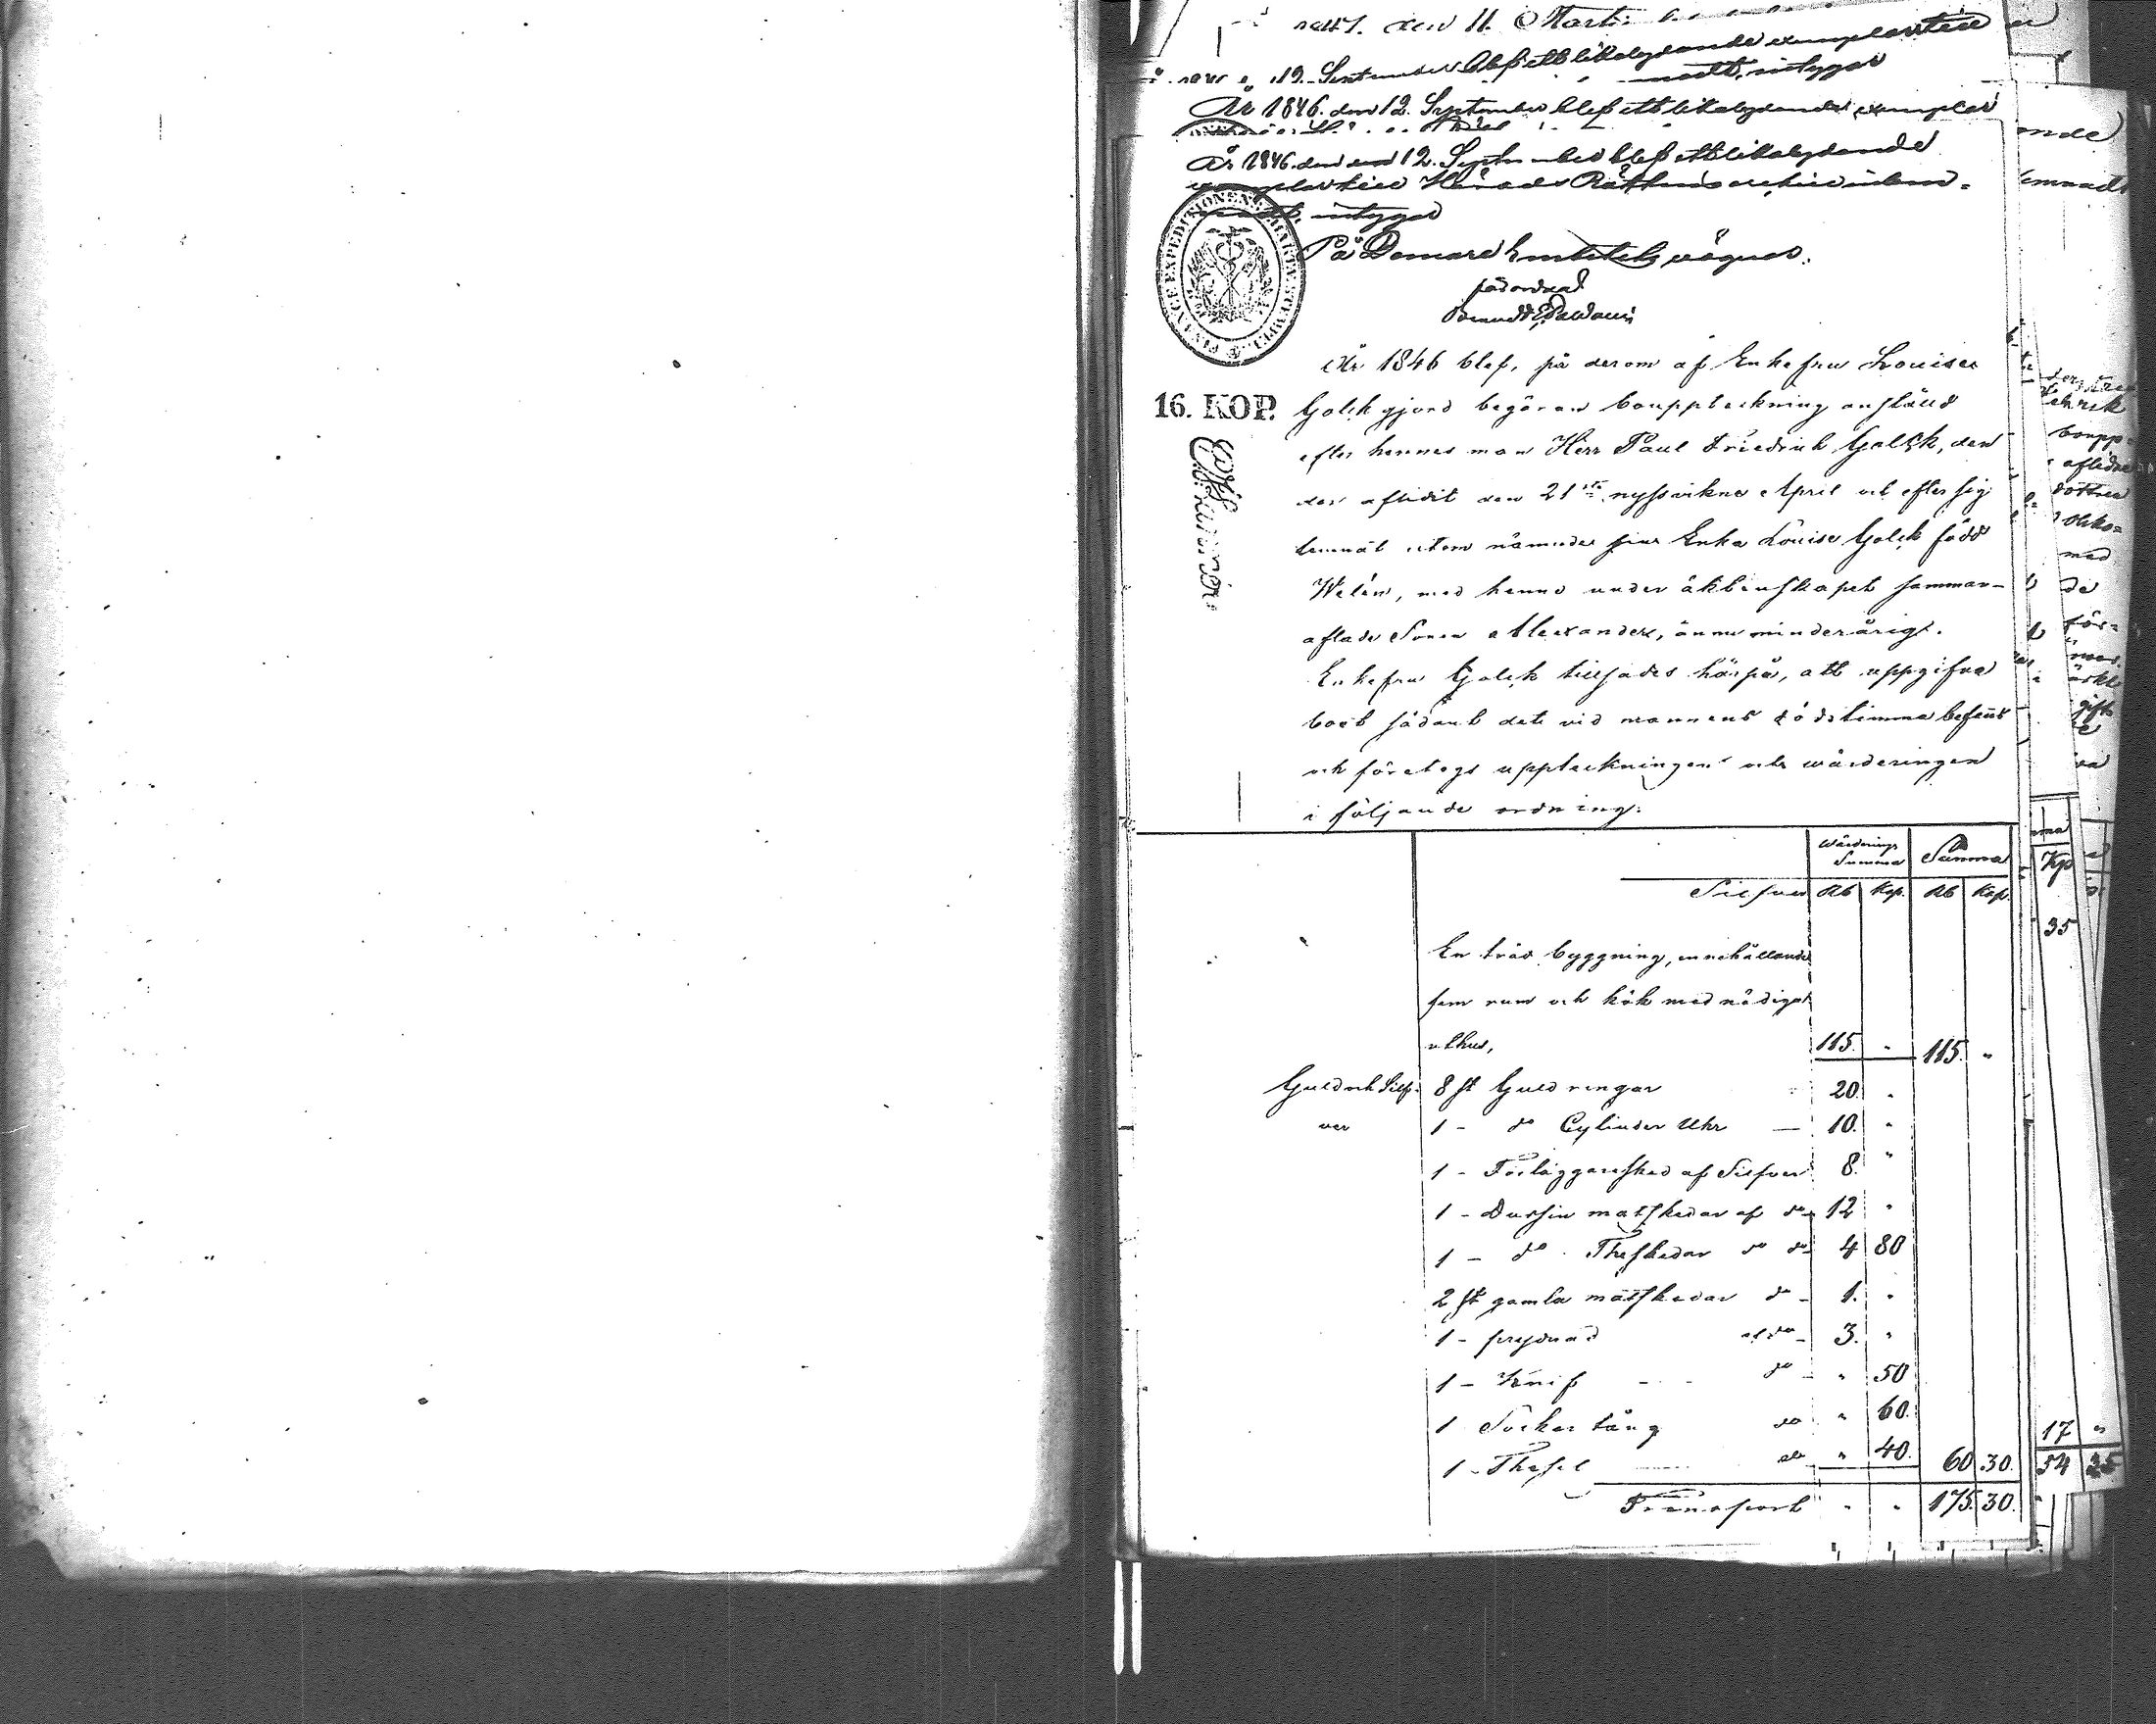 den 11. Mart
12. September blef ett likalydande exemplar till
År 1846. den 12. September blef ett likalydande exemplar
År 1846. den 12. September blef ett likalydande
exemplar till Härads Rättens archiv inlem-
nadt, intygar
På Domare Embetets vägnar.
förordnad
FINANCE EXPEDITIONENS CHARTÆ STEMPEL.
År 1846 blef, på derom af Enkefru Louise
16. KOP. Golck gjord begäran bouppteckning anstäld
efter hennes man Herr Paul Friedrich Golck, den
der aflidit den 21sta nyssvikne April och efter sig
lemnat utom nämnde sin Enka Louise Golck född
Welén, med henne under äktenskapet samman-
aflade Sonen Alexander, ännu minderårig.
Enkefru Golck tillsades härpå, att uppgifva
boet sådant det vid mannens dödstimma befans
och företogs uppteckningen och wärderingen
i följande ordning:
Wärderings Summa Summa
Silfver Rb Kop. Rb Kop.
En träd byggning, innehållande
fem rum och kök med nödigt
uthus, 115. " 115. "
Guld och Silf- 8 st Guld ringar 20. "
ver 1 - do Cylinder Uhr — 10. "
1 - Förläggaresked af Silfver 8. "
1 - Dussin matskedar af do 12 "
1 - do Theskedar do do 4 80
2 st gamla matskedar do - 1. "
1 - do - 3. "
1 - Knif - - do - " 50
1 Sockertång do " 60.
1 - Thesil do " 40. 60.30.
Transport " " 175.30.
Kp
35
17 "
54 35